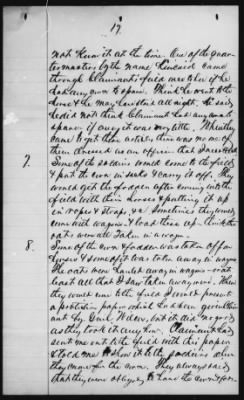 17
not Know it at the time. One of the quar-
termasters by the name Kincaid came
through Claimant's field one to see if he
had any corn to spare. I think he went to the
house & he may have staid all night. He said
he did not think Claimant had any corn to
spare if any it was very little. Wheatley
came to get these articles there was one of
them dressed as an officer that I
7. Some of the soldiers would come to the field
& put the corn in sacks & carry it off. They
would get the fodder after coming into the
field with their horses & putting it up
in ropes & straps, &c. Sometimes they would
come with wagons & load them up. I think the
oats were all taken in a wagon.
8. Some of the corn & fodder was taken off on
horses & some of it was taken away in wagons
The oats were hauled away in wagons at
least all that I saw taken away was. When
they would come to the field I would present
a protection paper which had been given Claim-
ant by Genl. but it did no good
as they took it any how. Claimant had
sent me out to the field with this paper
& told me to show it to the soldiers when
they came for the corn. They always said
that they were obliged to have the corn &